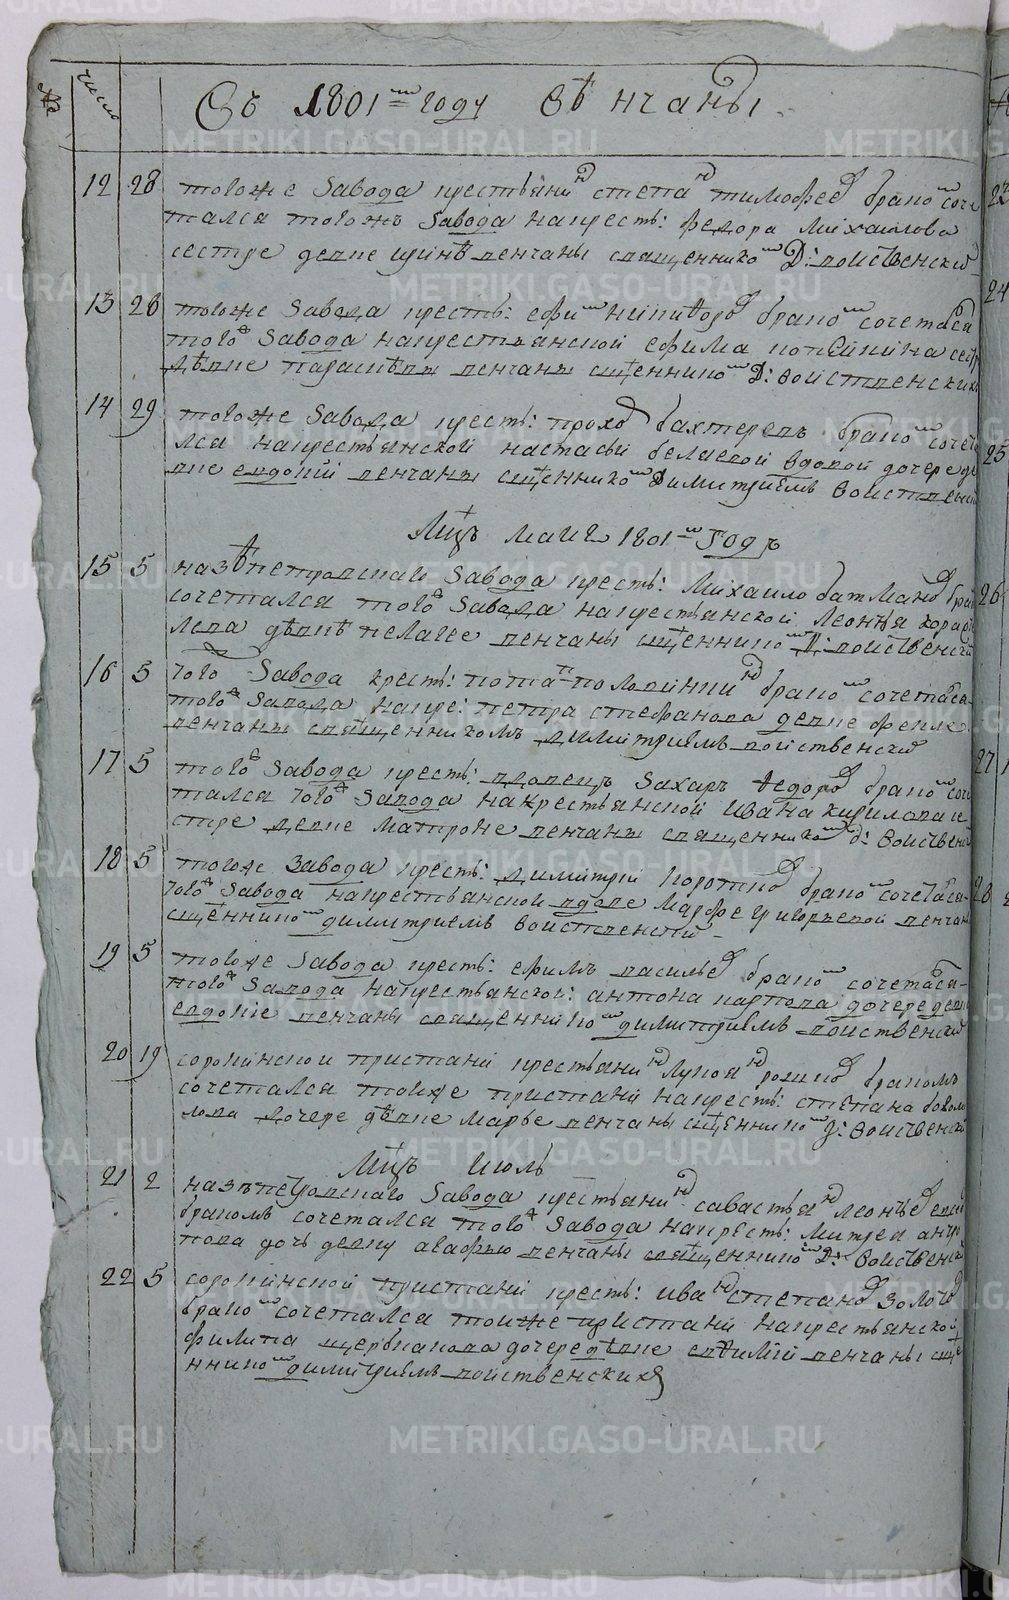 № число
Съ 1801м году вѣнчаны
12 28 тогоже Завода крестьянинъ степанъ тимофеевъ бракомъ соче
тался тогожъ Завода накресть: федора михаилова
сестре девке вѣнчаны священникомъ Д: воиственскимъ
13 28 тогоже Завода кресть: ефимъ никифоровъ бракомъ сочетался
того Завода накрестьянской ефима сестре
дѣвке параскѣве венчаны сщенникомъ Д: воиственскимъ
14 29 тогоже Завода кресть: прохоръ бахтеревъ бракомъ сочета
лся накрестьянской настасьи беляевой вдовой дочере де
вке евдокии венчаны сщенникомъ димитриемъ воиственским
Мцъ маиа 1801м годъ
15 5 назѣпетровскаго Завода кресть: михаило батмановъ брак
сочетался того Завода накрестьянской леонтья
лева дѣвкѣ пелагее венчаны сщенникомъ Д: воиственски
16 5 того Завода кресть: потапъ половинкинъ бракомъ сочетался
того Завода накре: петра стефанова девке фекле
венчаны священникомъ димитриемъ воиственским
17 5 того Завода кресть: вдовецъ захаръ федоровъ бракомъ соче
тался того Завода накрестьянской ивана кирилова се
стре девке матроне венчаны священникомъ д: воиственс
18 5 тогоже Завода кресть: димитрий коротковъ бракомъ сочетался
того Завода накрестьянской вдове марфе григорьевой венчаны
сщенникомъ димитриемъ воиственским
19 5 тогоже Завода кресть: ефимъ васильевъ бракомъ сочетался
того Завода накрестьянской: антона карпова дочере девке
евдокие венчаны священникомъ димитриемъ воиственским
20 19 сорокинской пристани крестьянинъ бракомъ
сочетался тоиже пристани накресть: степана
лова дочере дѣвке марье венчаны сщенникомъ д: воиственски
Мцъ июль
21 2 назъпетровскаго Завода крестьянинъ савастьянъ леонтьев
бракомъ сочетался того Завода накресть: митреи
пова дочь девку агафью венчаны священникомъ Д: воиственск
22 5 сорокинской пристани кресть: иванъ степановъ
бракомъ сочетался тоиже пристани накрестьянской
филипа щербакова дочере дѣвке евфимии венчаны сще
нникомъ димитриемъ воиственскимъ